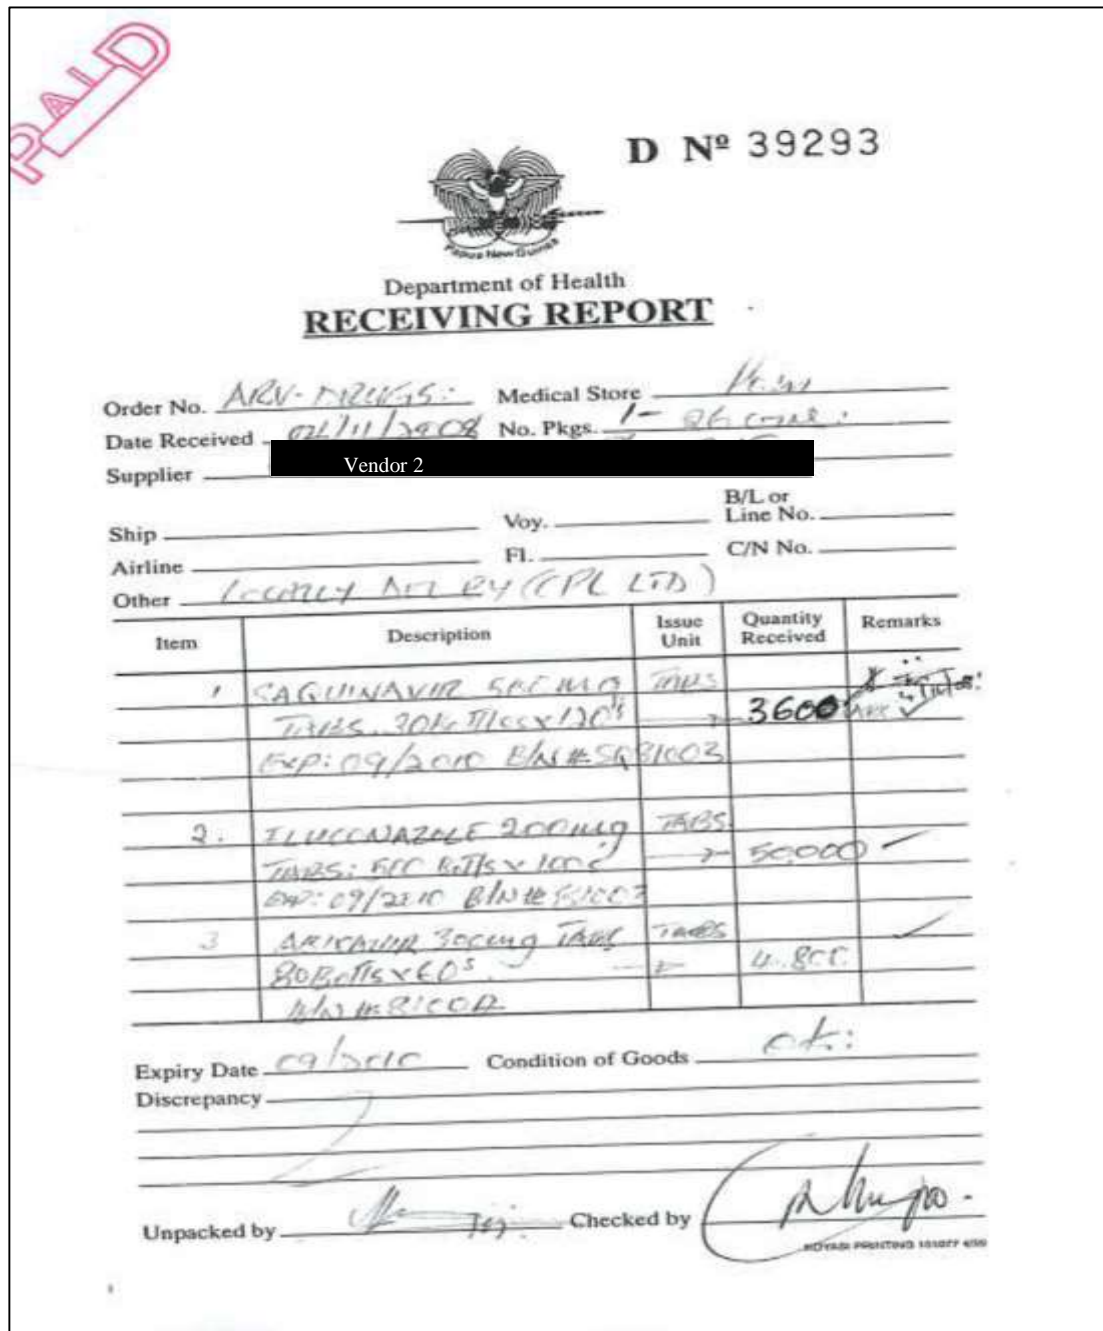 PAID
D Nº 39293
Papua New Guinea
Department of Health
RECEIVING REPORT
Order No. ARV-DRUGS: Medical Store
Date Received 04/11/2008 No. Pkgs. 1-26
Supplier Vendor 2
Ship Voy. B/L or Line No.
Airline Fl. C/N No.
Other LOCALLY DEL BY (CPL LTD)
Item Description Issue Unit Quantity Received Remarks
1 SAQUINAVIR 500 MG TABS
TABS. 30 x 120's 3600
EXP: 09/2010 B/N # SQ81003
2. FLUCONAZOLE 200mg TABS
TABS: 500 Botts x 100s 50,000
EXP: 09/2010 B/N #
3 300mg TABS TABS
80 Botts x 60s 4,800
B/N #
Expiry Date 09/2010 Condition of Goods ok:
Discrepancy
Unpacked by Checked by